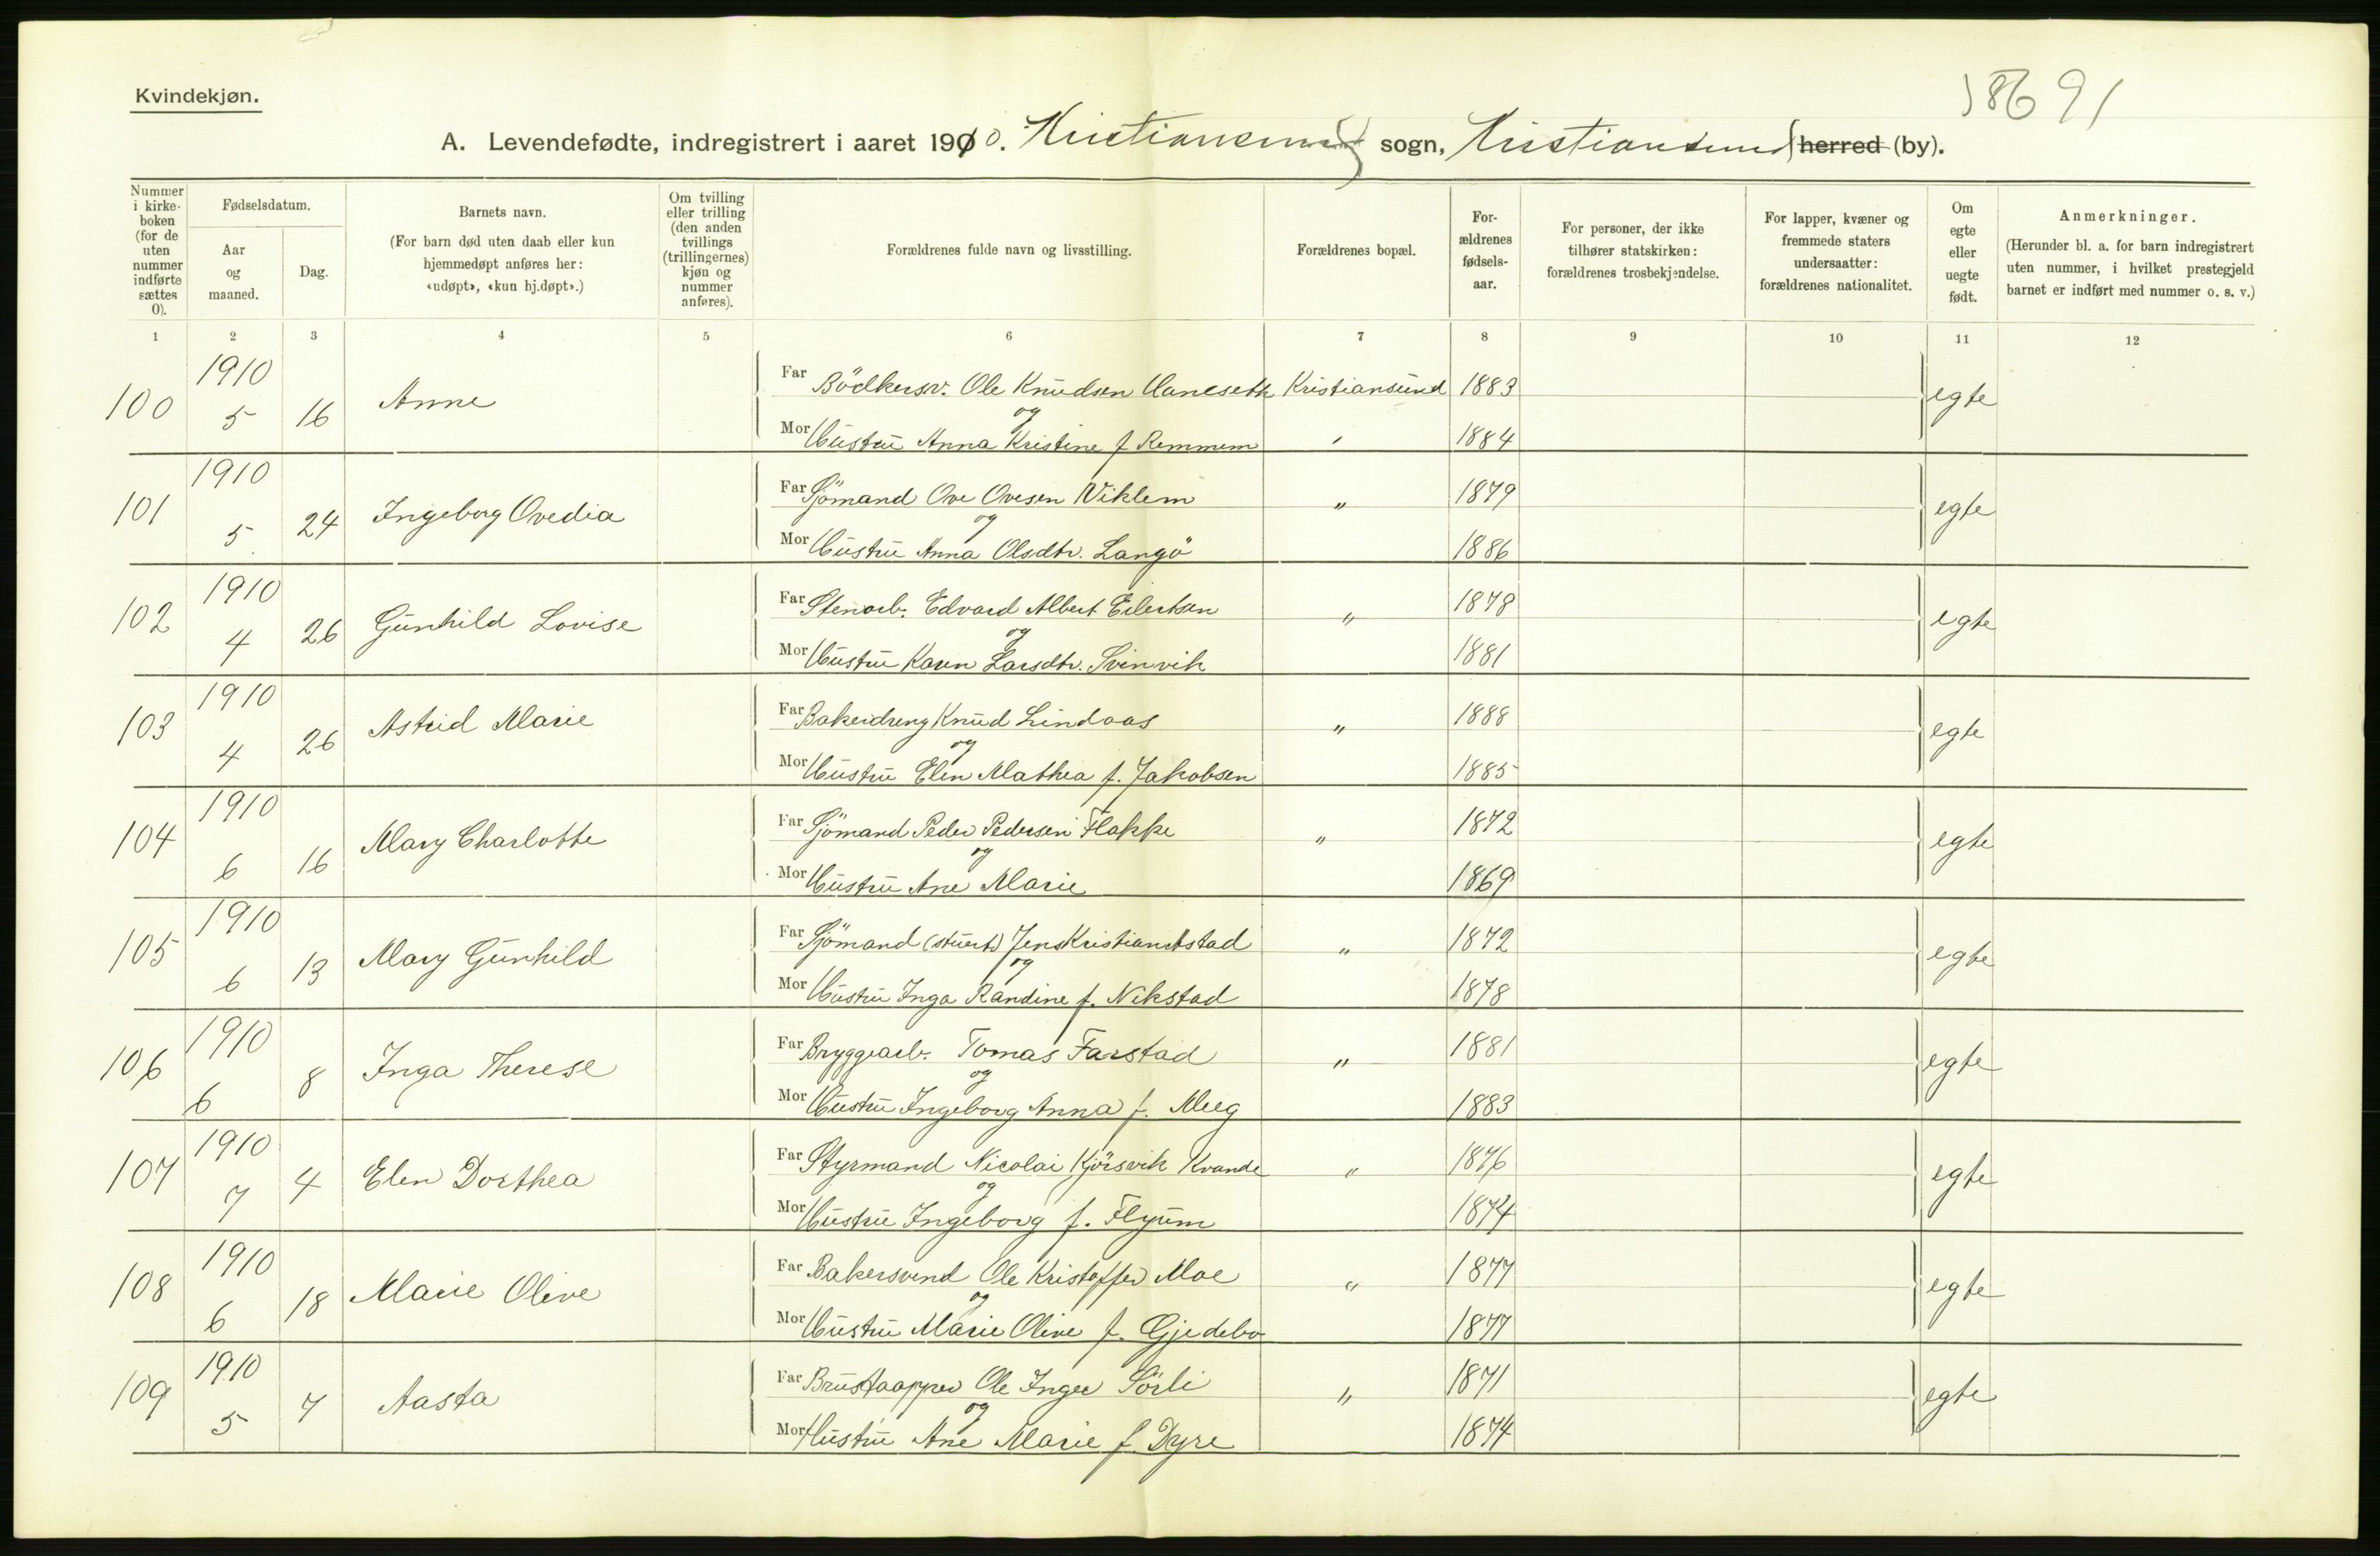 Kvindekjøn.
A. Levendefødte, indregistrert i aaret 1910. Kristiansund sogn, Kristiansund herred (by).
Nummer i kirkeboken (for de uten nummer indførte sættes 0).
Fødselsdatum.
Aar og maaned.
Dag.
Barnets navn.
(For barn død uten daab eller kun hjemmedøpt anføres her: «udøpt», «kun hj.døpt».)
Om tvilling eller trilling (den anden tvillings (trillingernes) kjøn og nummer anføres).
Forældrenes fulde navn og livsstilling.
Forældrenes bopæl.
Forældrenes fødselsaar.
For personer, der ikke tilhører statskirken: forældrenes trosbekjendelse.
For lapper, kvæner og fremmede staters undersaatter: forældrenes nationalitet.
Om egte eller uegte født.
Anmerkninger.
(Herunder bl. a. for barn indregistrert uten nummer, i hvilket prestegjeld barnet er indført med nummer o. s. v.)
1 2 3 4 5 6 7 8 9 10 11 12
100 1910 5 16 Anne
Far Bödkersv. Ole Knudsen Haneseth Kristiansund 1883 egte
og
Mor Hustru Anna Kristine f Remmem " 1884
101 1910 5 24 Ingeborg Ovedia
Far Sjömand Ove Ovesen Viklem " 1879 egte
og
Mor Hustru Anna Olsdtr. Langö 1886
102 1910 4 26 Gunhild Lovise
Far Stenarb. Edvard Albert Eilertsen " 1878 egte
og
Mor Hustru Karen Larsdtr. Svinvik 1881
103 1910 4 26 Astrid Marie
Far Bakerdreng Knud Lindaas " 1888 egte
og
Mor Hustru Elen Mathea f. Jakobsen 1885
104 1910 6 16 Mary Charlotte
Far Sjömand Peder Pedersen Flakke " 1872 egte
og
Mor Hustru Ane Marie 1869
105 1910 6 13 Mary Gunhild
Far Sjömand (stuert) Jens Kristian 1872 egte
og
Mor Hustru Inga Randine f. Nekstad 1878
106 1910 6 8 Inga Therese
Far Bryggearb. Tomas Farstad " 1881 egte
og
Mor Hustru Ingeborg Anna f. Meeg 1883
107 1910 7 4 Elen Dorthea
Far Styrmand Nicolai Kjörsvik Kvande " 1876 egte
og
Mor Hustru Ingeborg f. Flyum 1874
108 1910 6 18 Marie Olive
Far Bakersvend Ole Kristoffer Moe " 1877 egte
og
Mor Hustru Marie Olive f. Gjedebo 1877
109 1910 5 7 Aasta
Far Brustapper Ole Inger Sörli " 1871 egte
og
Mor Hustru Ane Marie f. Dyre 1874